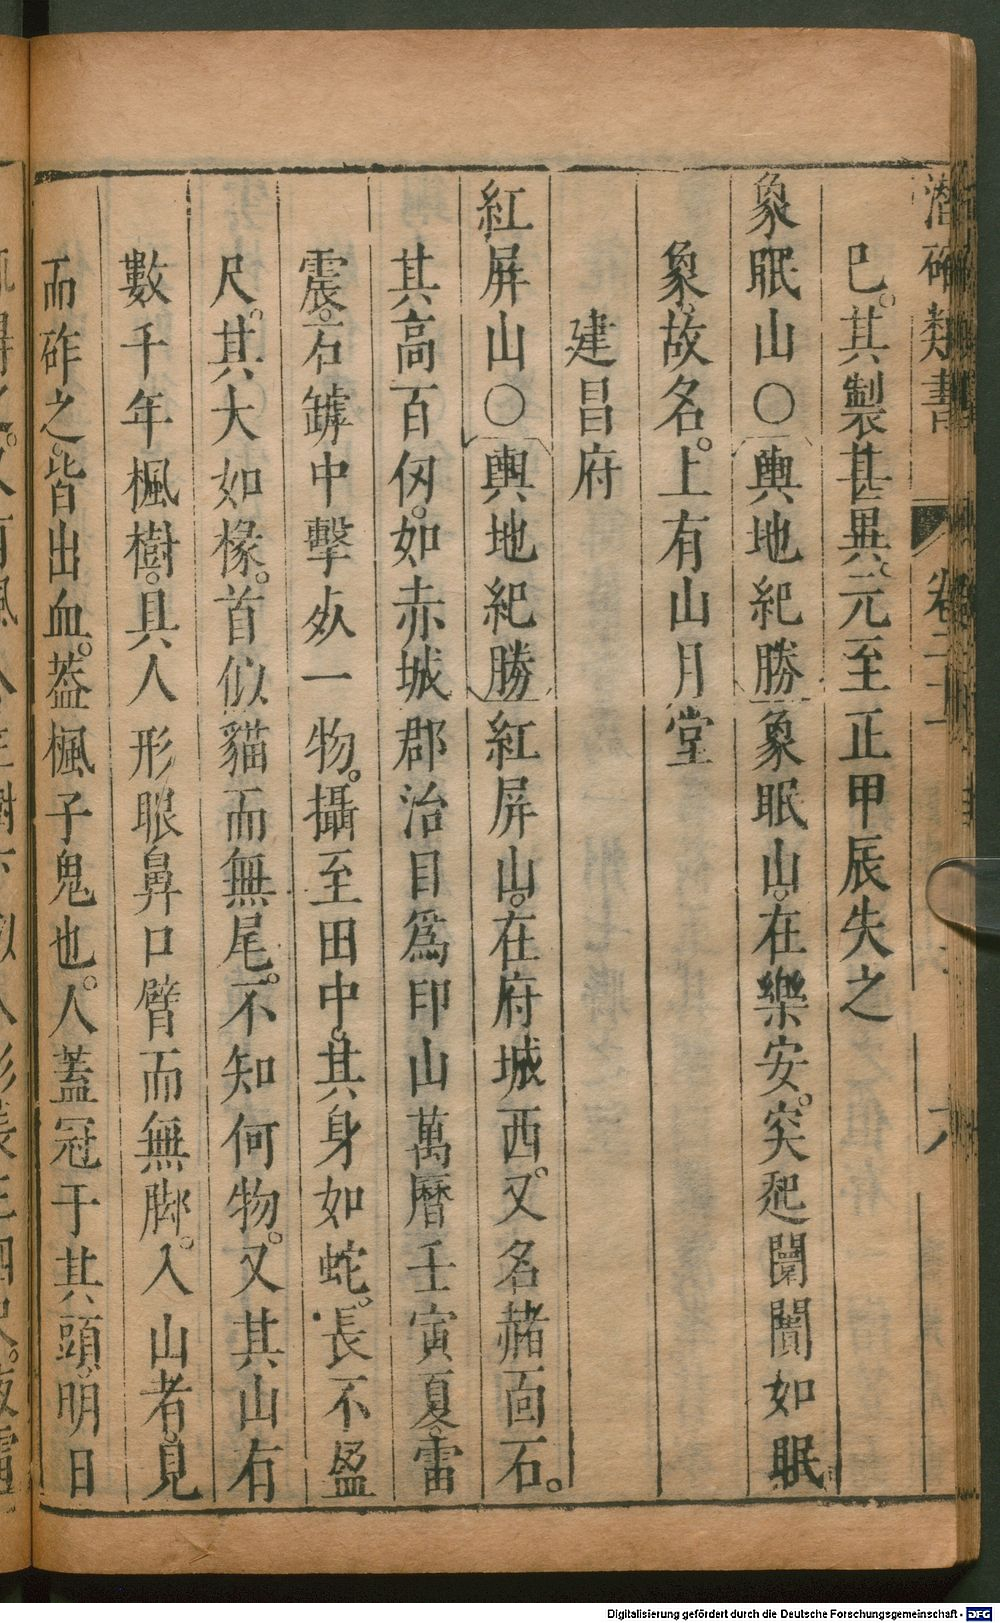 潛確類書 卷二十 六
已。其製甚異。元至正甲辰失之
象眠山○輿地紀勝象眠山。在樂安。突起闤闠如眠
象。故名。上有山月堂
建昌府
紅屏山○輿地紀勝紅屏山。在府城西。又名赭面石。
其高百仞。如赤城郡治目爲印山萬曆壬寅夏。雷
震。石罅中擊㚑一物。攝至田中。其身如蛇。長不盈
尺。其大如椽。首似貓而無尾。不知何物。又其山有
數千年楓樹。具人形眼鼻口臂而無脚。入山者。見
而砟之。皆出血。葢楓子鬼也。人蓋冠于其頭。明日
Digitalisierung gefördert durch die Deutsche Forschungsgemeinschaft - DFG